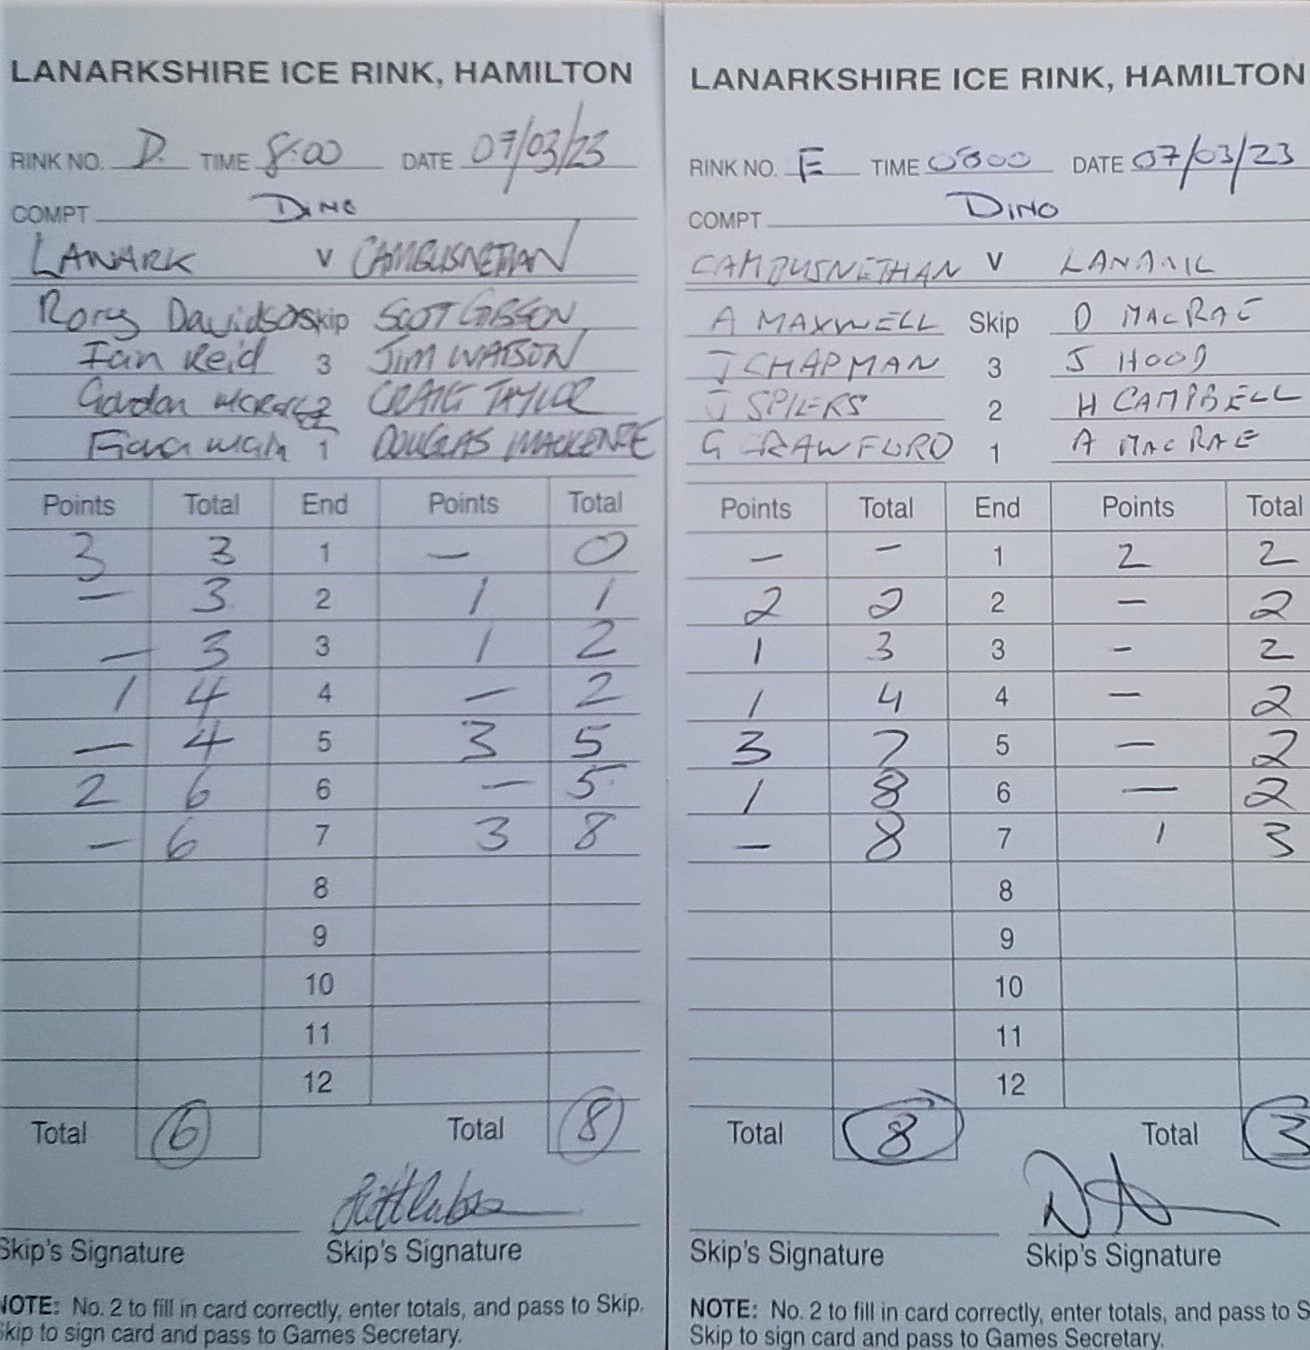 LANARKSHIRE ICE RINK, HAMILTON
RINK NO. D. TIME 8:00 DATE 07/03/23
COMPT DINO
LANARK v CAMBUSNETHAN
Rory Davidson Skip SCOTT GIBSON
Iain Reid 3 JIM WATSON
Gordon 2 CRAIG TAYLOR
Fiona Main 1 DOUGLAS MACKENZIE
Points Total End Points Total
3 3 1 — 0
— 3 2 1 1
— 3 3 1 2
1 4 4 — 2
— 4 5 3 5
2 6 6 — 5
— 6 7 3 8
8
9
10
11
12
Total 6 Total 8
Skip's Signature Skip's Signature
NOTE: No. 2 to fill in card correctly, enter totals, and pass to Skip.
Skip to sign card and pass to Games Secretary.
LANARKSHIRE ICE RINK, HAMILTON
RINK NO. E TIME 0800 DATE 07/03/23
COMPT DINO
CAMBUSNETHAN V LANARK
A MAXWELL Skip D MACRAE
J CHAPMAN 3 J HOOD
J SPIERS 2 H CAMPBELL
G CRAWFORD 1 A MACRAE
Points Total End Points Total
— — 1 2 2
2 2 2 — 2
1 3 3 — 2
1 4 4 — 2
3 7 5 — 2
1 8 6 — 2
— 8 7 1 3
8
9
10
11
12
Total 8 Total 3
Skip's Signature Skip's Signature
NOTE: No. 2 to fill in card correctly, enter totals, and pass to S
Skip to sign card and pass to Games Secretary.